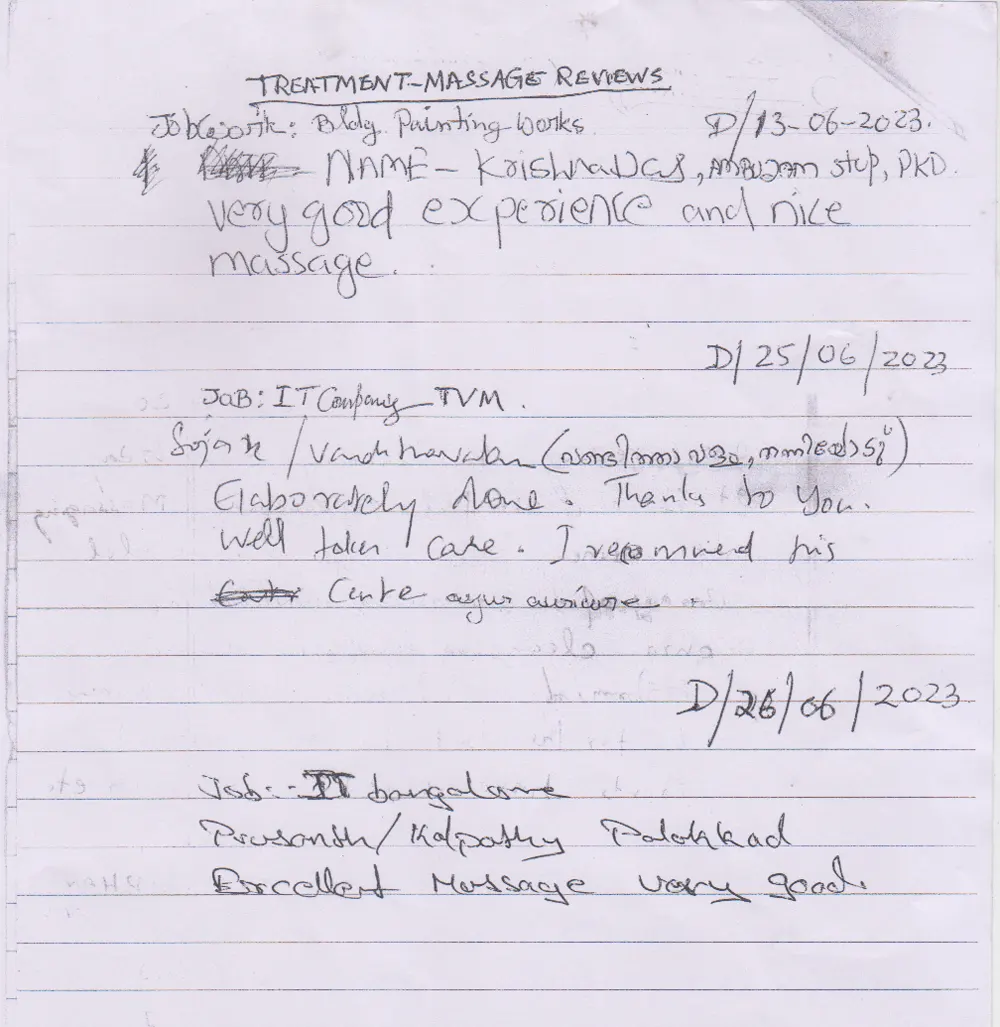 TREATMENT-MASSAGE REVIEWS
Job work: Bldg. Painting Works D/13-06-2023.
NAME - KrishnaDas, AMBUJAM stop, PKD.
very good experience and nice
massage.
D/25/06/2023
JOB: IT Company TVM.
/
Elaborately done. Thanks to you.
Well taken care. I recommend his
Centre ayur
D/26/06/2023
Job: IT bangalore
Prasanth/Kalpathy Palakkad
Excellent Massage very good.